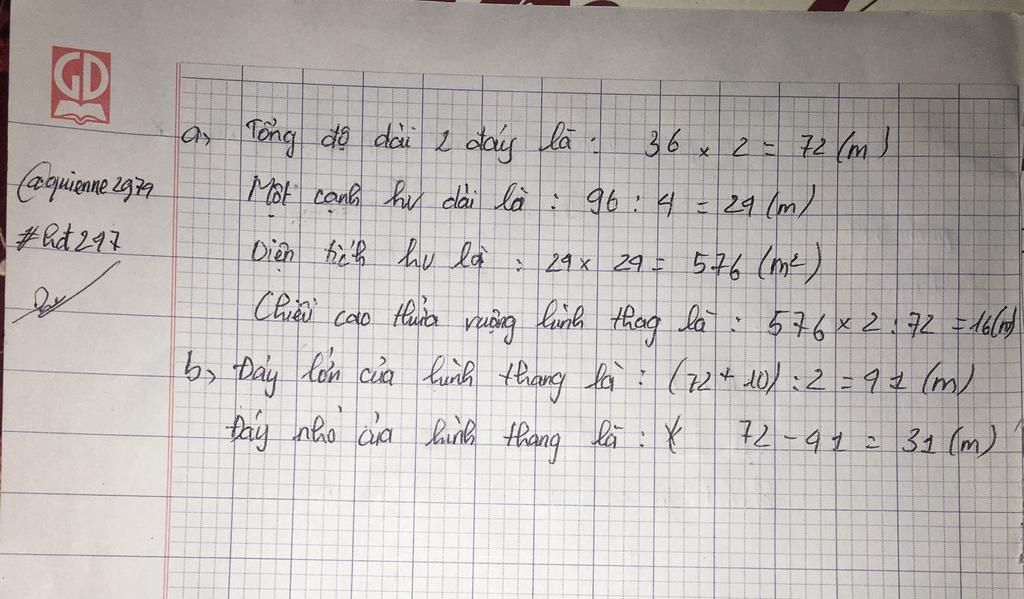 GD
a, Tổng độ dài 2 đáy là : 36 × 2 = 72 (m)
@aquienne2979
Một cạnh hv dài là : 96 : 4 = 24 (m)
#hdt247
Diện tích hv là : 24 × 24 = 576 (m²)
Chiều cao thửa ruộng hình thag là : 576 × 2 : 72 = 16 (m)
b, Đáy lớn của hình thang là : (72 + 10) : 2 = 41 (m)
Đáy nhỏ của hình thang là : 72 - 41 = 31 (m)